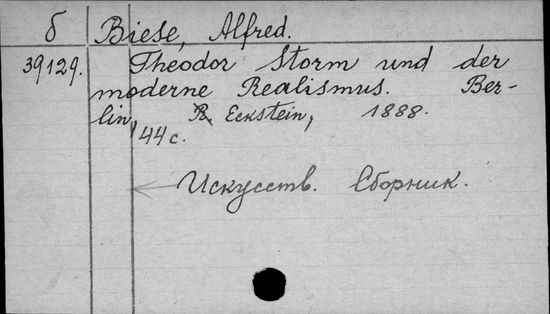 б Biese, Alfred.
39129. Theodor Storm und der
moderne Realismus. Ber-
lin, R. Eckstein, 1888.
44 с.
Искусств. Сборник.